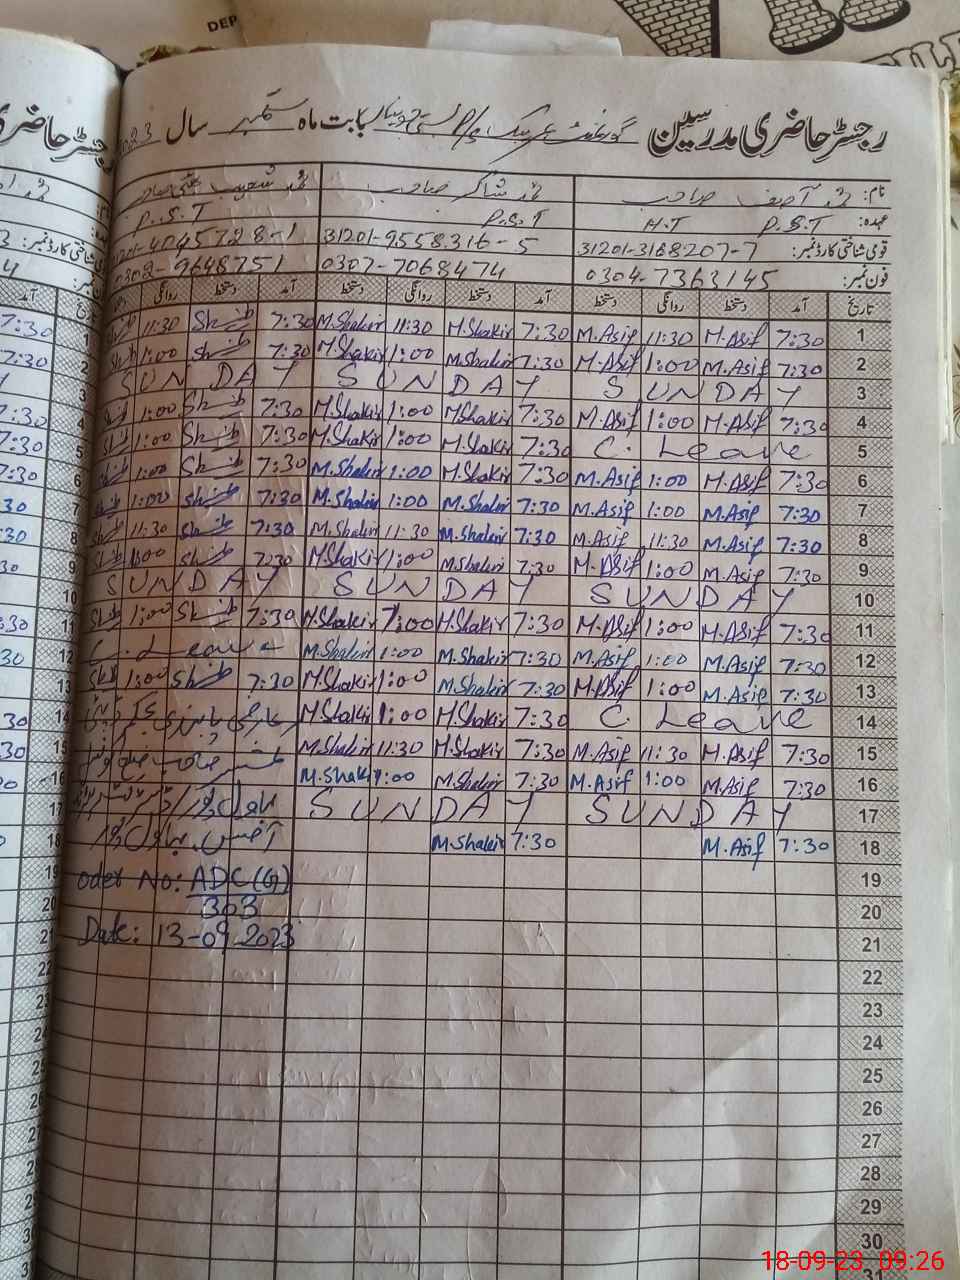 DEP
رجسٹر حاضری مدرسین گورنمنٹ P/S بابت ماہ ستمبر سال 2023
نام: محمد آصف صاحب محمد شاکر صاحب محمد شعیب صاحب
عہدہ: P.S.T H.T P.S.T P.S.T
قومی شناختی کارڈ نمبر: 31201-3168207-7 31201-9558316-5 31201-4045728-1
فون نمبر: 0304-7363145 0307-7068474 0302-9648751
تاریخ آمد دستخط روانگی دستخط آمد دستخط روانگی دستخط آمد دستخط روانگی
1 7:30 M.Asif 11:30 M.Asif 7:30 M.Shakir 11:30 M.Shakir 7:30 11:30
2 7:30 M.Asif 1:00 M.Asif 7:30 M.Shakir 1:00 M.Shakir 7:30 1:00
3 SUNDAY SUNDAY SUNDAY
4 7:30 M.Asif 1:00 M.Asif 7:30 M.Shakir 1:00 M.Shakir 7:30 1:00
5 C. Leave 7:30 M.Shakir 1:00 M.Shakir 7:30 1:00
6 7:30 M.Asif 1:00 M.Asif 7:30 M.Shakir 1:00 M.Shakir 7:30 1:00
7 7:30 M.Asif 1:00 M.Asif 7:30 M.Shakir 1:00 M.Shakir 7:30 1:00
8 7:30 M.Asif 11:30 M.Asif 7:30 M.Shakir 11:30 M.Shakir 7:30 11:30
9 7:30 M.Asif 1:00 M.Asif 7:30 M.Shakir 1:00 M.Shakir 7:30 1:00
10 SUNDAY SUNDAY SUNDAY
11 7:30 M.Asif 1:00 M.Asif 7:30 M.Shakir 1:00 M.Shakir 7:30 1:00
12 7:30 M.Asif 1:00 M.Asif 7:30 M.Shakir 1:00 M.Shakir C. Leave
13 7:30 M.Asif 1:00 M.Asif 7:30 M.Shakir 1:00 M.Shakir 7:30 1:00
14 C. Leave 7:30 M.Shakir 1:00 M.Shakir
15 7:30 M.Asif 11:30 M.Asif 7:30 M.Shakir 11:30 M.Shakir
16 7:30 M.Asif 1:00 M.Asif 7:30 M.Shakir 1:00 M.Shakir
17 SUNDAY SUNDAY بہاول پور
18 7:30 M.Asif 7:30 M.Shakir آفس بہاول پور
19 oder No: ADC(G)
20 303
21 Date: 13-09-2023
22
23
24
25
26
27
28
29
30
31
18-09-23 09:26